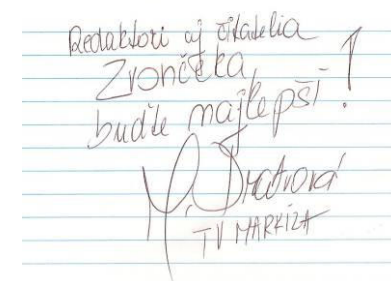 Redaktori aj čitatelia
Zvončeka,
buďte najlepší!
TV MARKÍZA